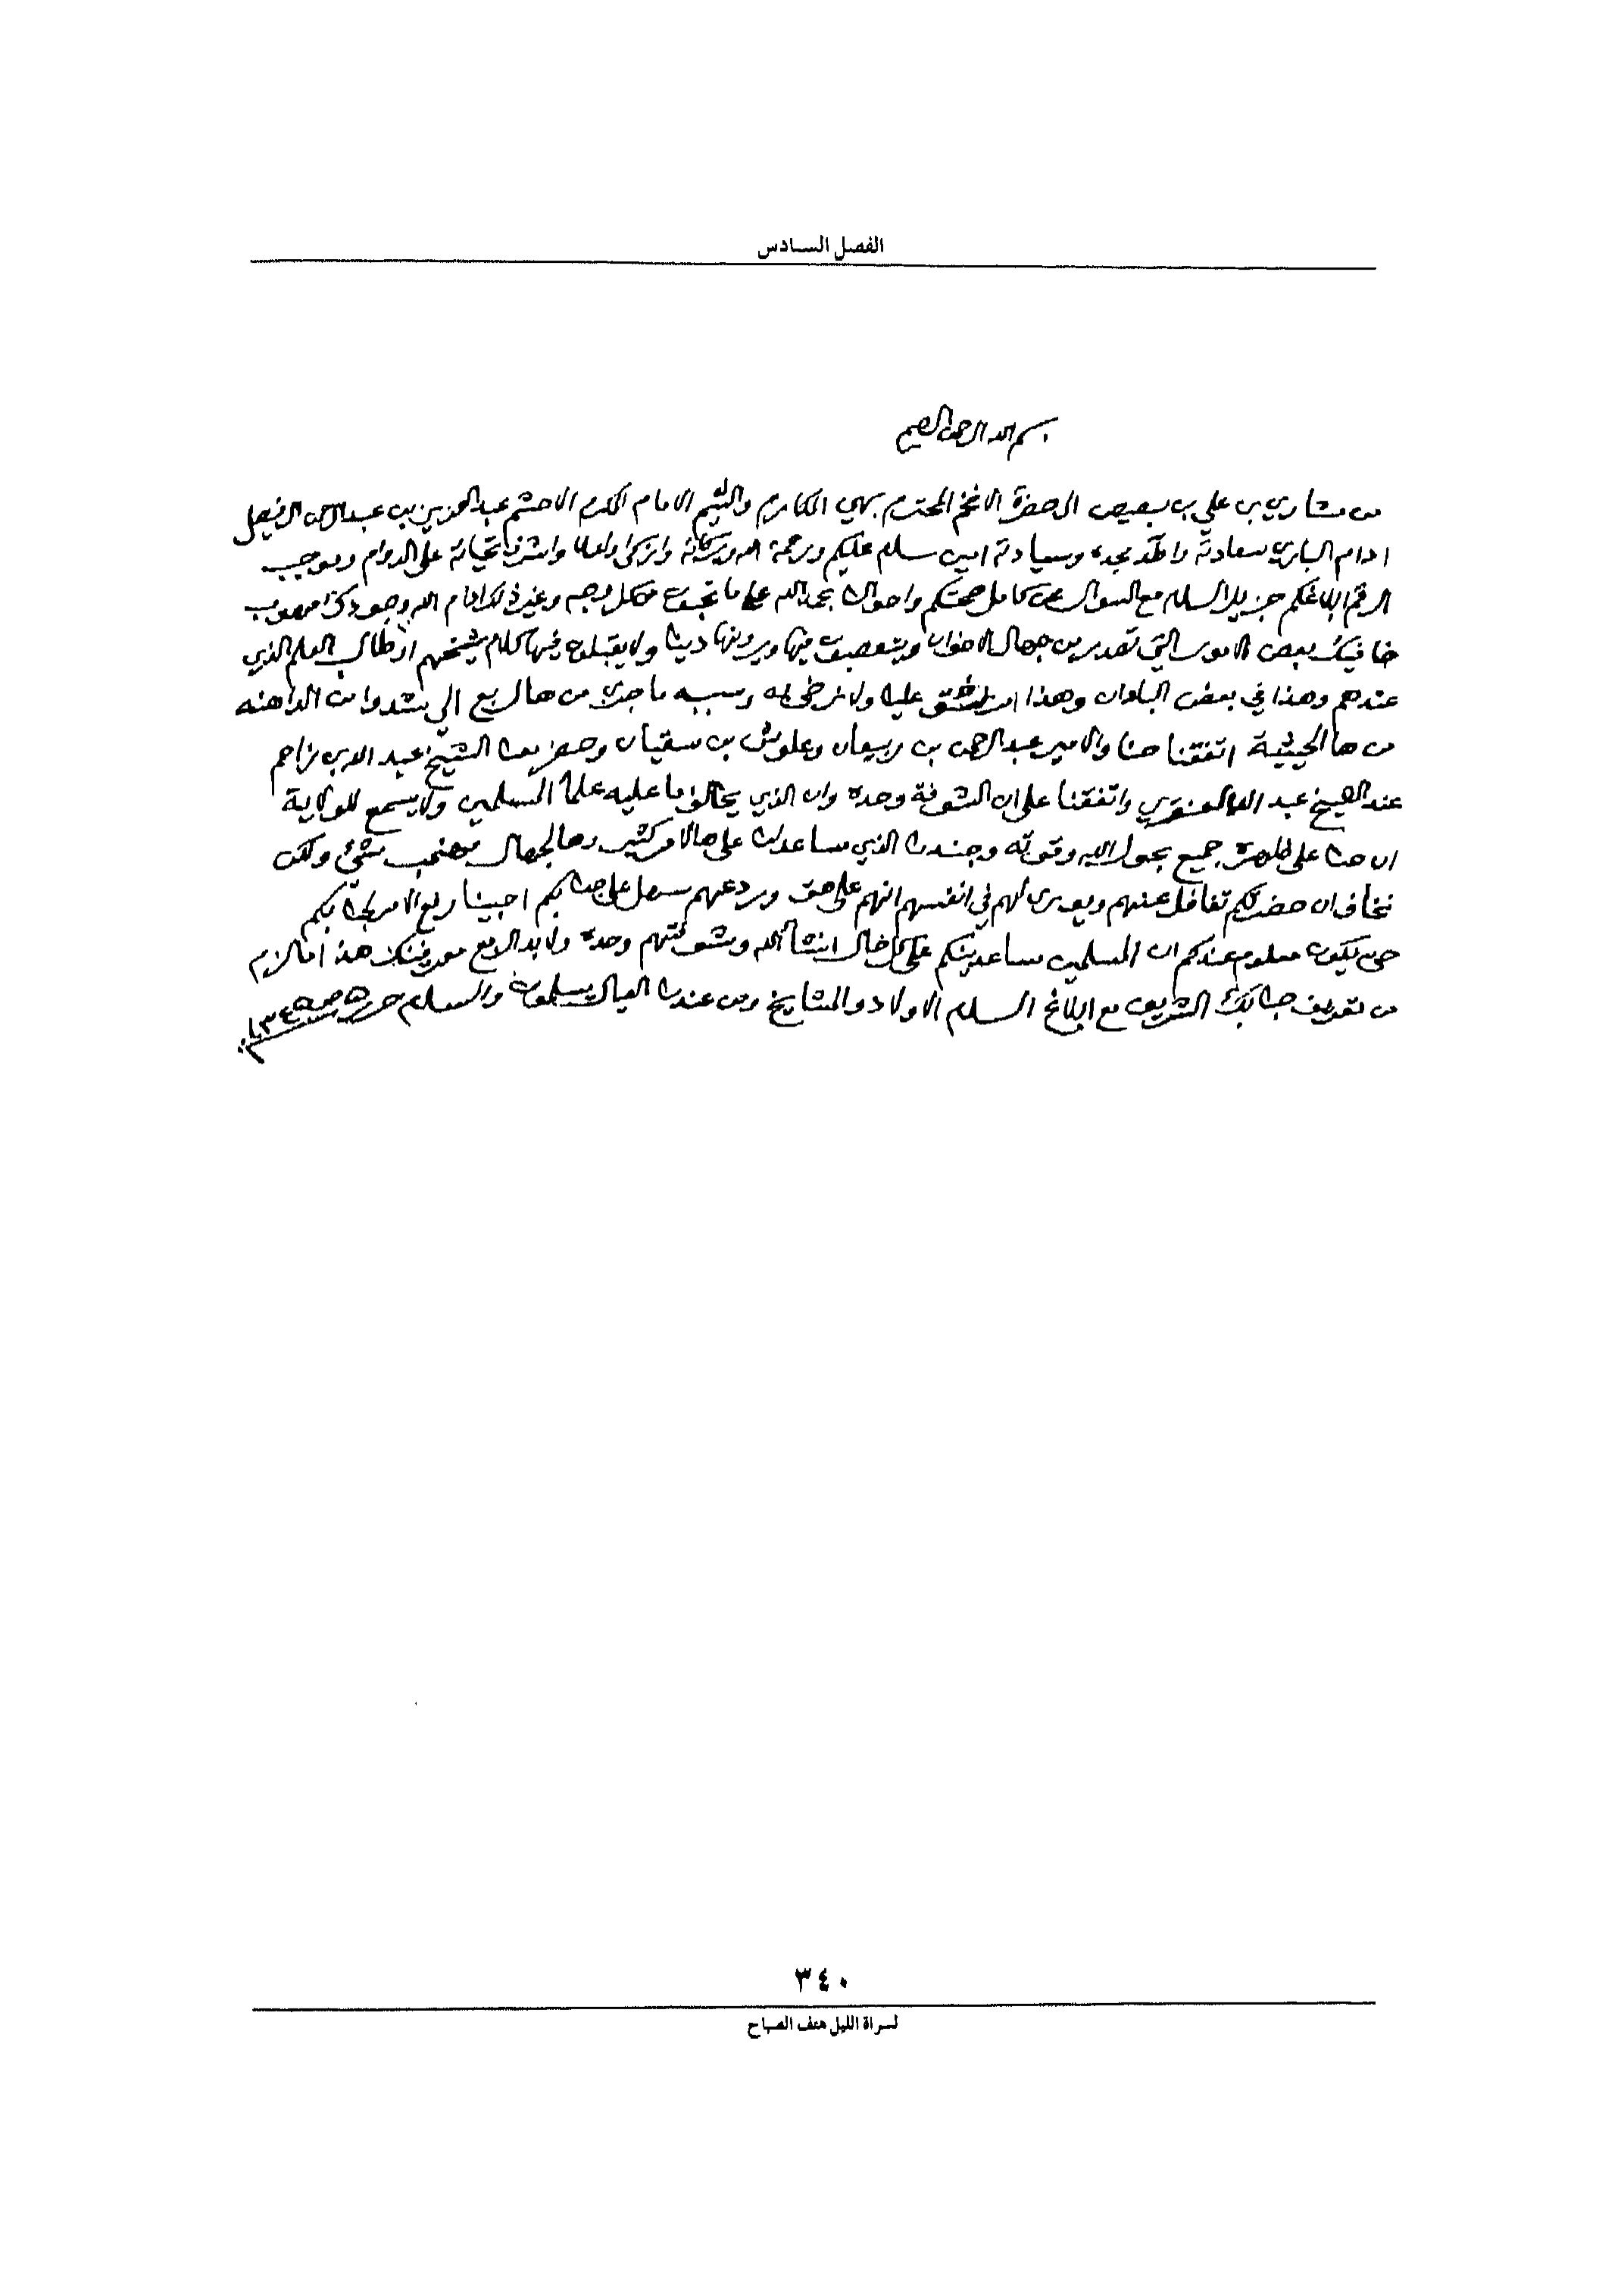 الفصل السادس
بسم الله الرحمن الرحيم
من مشاري بن علي بن بصيص الى حضرة الافخم المحترم بهي المكارم والشيم الامام المكرم الاحشم عبدالعزيز بن عبدالرحمن الفيصل
ادام الباري سعادته واطد مجده وسيادته امين سلام عليكم ورحمة الله وبركاته وازكى واشرف تحياته على الدوام وموجب
الرقم ابلاغكم جزيل السلام مع السوال عن كامل صحتكم واحوالنا بحمد الله على ما تحبون من كل وجه وغير ذلك ادام الله وجودك
خافيك بعض الامور التي تصدر من جهال الاخوان ويتعصبون فيها ويرونها دينا ولا يقبلون فيها كلام شيخهم او طالب العلم الذي
عندهم وهذا في بعض البلدان وهذا امر يشق علينا ولا نرضى به وسببه ما جرى من هالربع الي شدوا من الداهنه
من هالحيثية اتفقنا حنا والامير عبدالرحمن بن ربيعان وعلوش بن سقيان وحضر معنا الشيخ عبد الله بن زاحم
عند الشيخ عبد الله العنقري واتفقنا على ان الشوفة وحده وان الذي يخالف ما عليه علما المسلمين ولا يسمع للولاية
ان حنا على ظاهرة جميع بحول الله وقوته وجندنا الذي مساعدنا على هالامر كثير وهالجهال شئ ولكن
نخاف ان حضرتكم تغافل عنهم ويصرى لهم في انفسهم انهم على حق وردعهم سهل على جنابكم احبينا رفع الامر لجنابكم
حتى يكون معلوم عندكم ان المسلمين مساعدينكم على كل حال انشا الله وشوفتهم وحده ولا بد الربع معرفينك هذا ما لزم
من تعريف جنابك الشريف مع ابلاغ السلام الاولاد والمشايخ ومن عندنا العيال يسلمون والسلام حرر
٣٤٠
لسراة الليل هتف الصباح